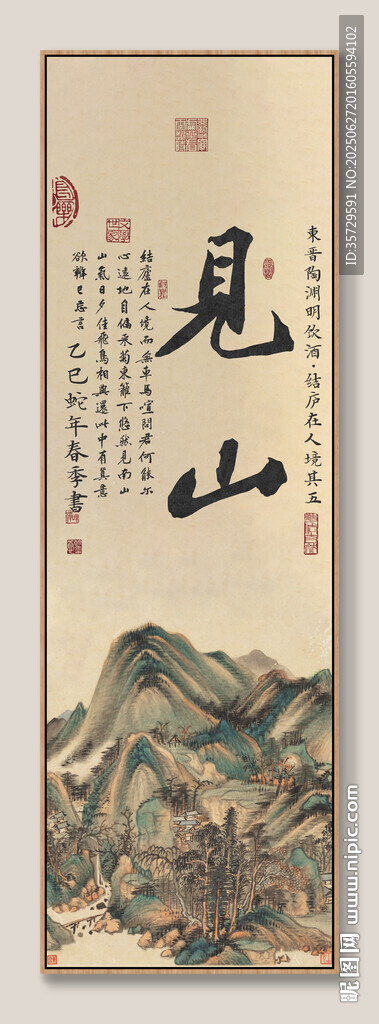 東晋陶渊明饮酒·结庐在人境其五
見山
結廬在人境而無車馬喧問君何能尔
心遠地自偏采菊東籬下悠然見南山
山氣日夕佳飛鳥相與還此中有真意
欲辨已忘言 乙巳蛇年春季書
ID:35729591 NO:20250627201605594102
昵图网 www.nipic.com